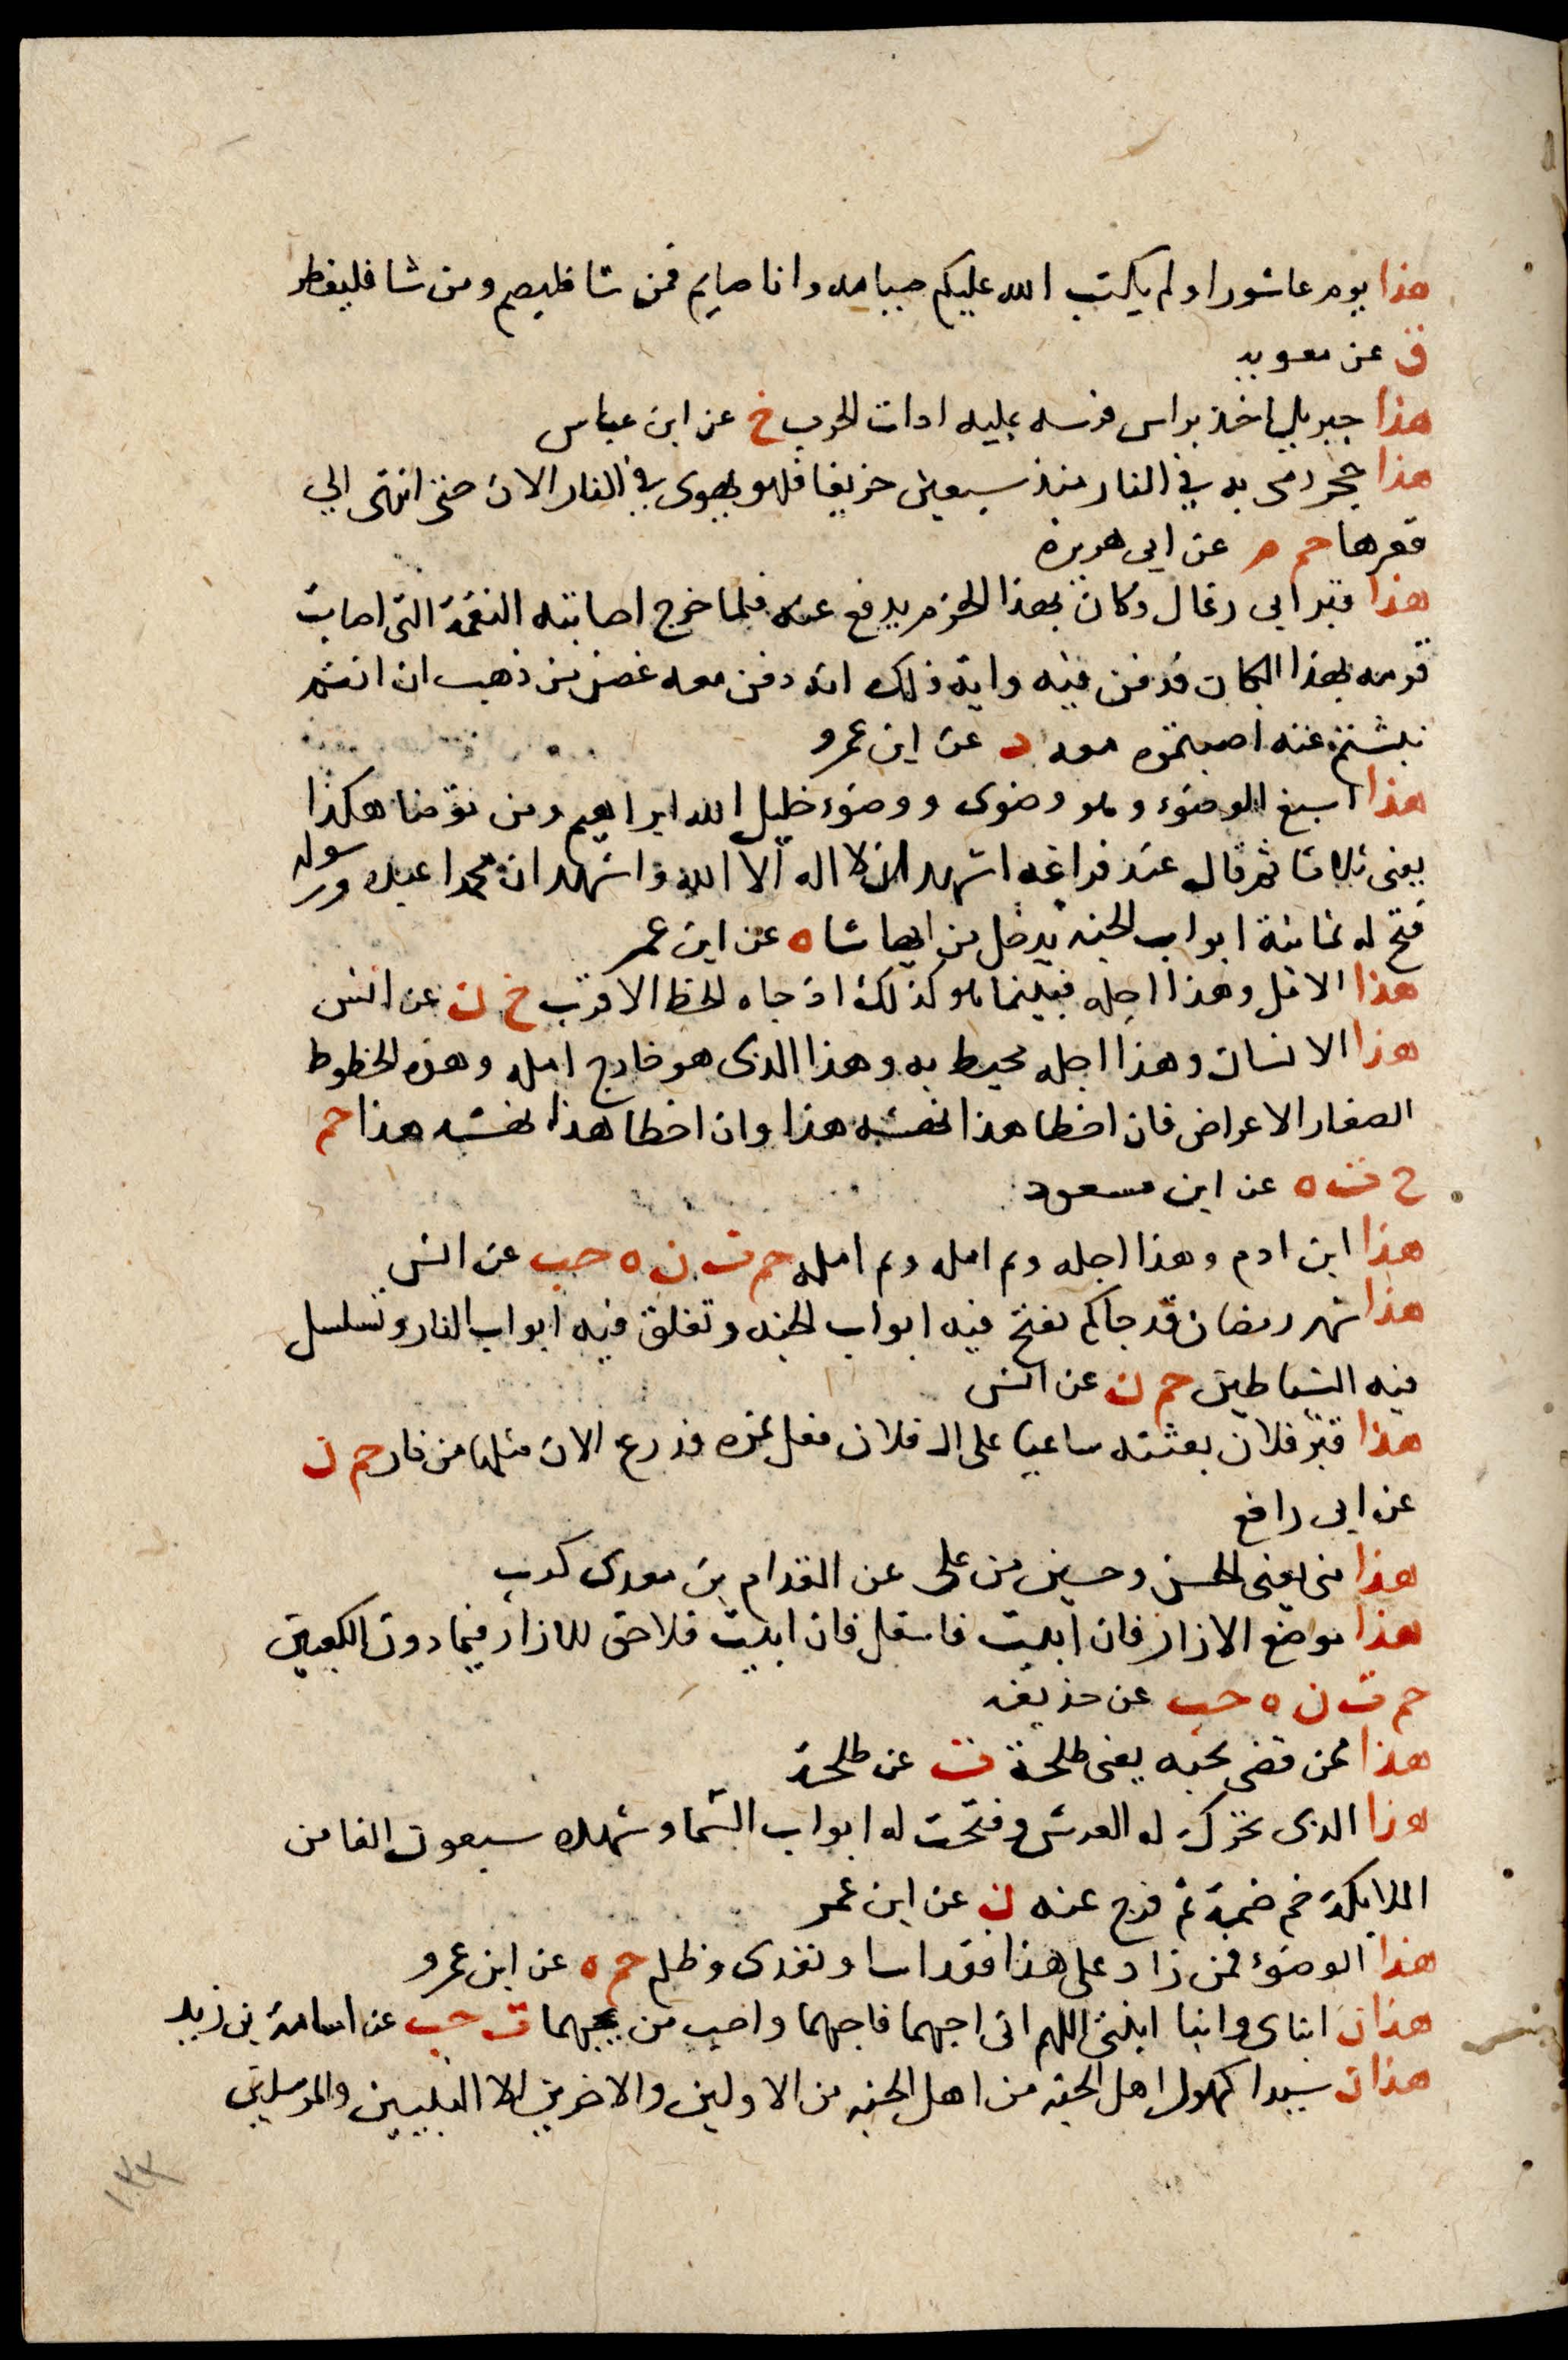 هذا يوم عاشورا ولم يكتب الله عليكم صيامه وانا صايم فمن شا فليصم ومن شا فليفطر
ق عن معويه
هذا جبريل اخذ براس فرسه عليه ادات الحرب خ عن ابن عباس
هذا حجر رمى به في النار منذ سبعين خريفا فهو يهوى في النار الان حتى انتهى الي
قعرها حم م عن ابى هريرة
هذا قبر ابى رغال وكان بهذا الحرم يدفع عنه فلما خرج اصابته النقمة التى اصابت
قومه بهذا المكان فدفن فيه واية ذلك انه دفن معه غصن من ذهب ان انتم
نبشتم عنه اصبتموه معه د عن ابن عمرو
هذا اسبغ الوضوء وهو وضوى ووضوء خليل الله ابراهيم ومن توضا هكذا
يعنى ثلاثا ثم قال عند فراغه اشهد ان لا اله الا الله واشهد ان محمدا عبده ورسوله
فتح له ثمانية ابواب الجنه يدخل من ايها شا ه عن ابن عمر
هذا الامل وهذا اجله فبينما هو كذلك اذ جاه الخط الاقرب خ ن عن انس
هذا الانسان وهذا اجله محيط به وهذا الذى هو خارج امله وهذه الخطوط
الصغار الاعراض فان اخطا هذا نهشه هذا وان اخطا هذا نهشه هذا حم
خ ت ه عن ابن مسعود
هذا ابن ادم وهذا اجله وثم امله وثم امله حم ت ن ه حب عن انس
هذا شهر رمضان قد جاكم تفتح فيه ابواب الجنه وتغلق فيه ابواب النار وتسلسل
فيه الشياطين حم ن عن انس
هذا قبر فلان بعثته ساعيا على ال فلان فغل نمره فدرع الان مثلها من نار حم ن
عن ابى رافع
هذا منى يعنى الحسن وحسين من على عن المقدام بن معدى كرب
هذا موضع الازار فان ابيت فاسفل فان ابيت فلا حق للازار فيما دون الكعبين
حم ت ن ه حب عن حذيفه
هذا ممن قضى نحبه يعنى طلحة ت عن طلحة
هذا الذى تحرك له العرش وفتحت له ابواب السما وشهده سبعون الفا من
الملايكة ضم ضمة ثم فرج عنه ن عن ابن عمر
هذا الوضوء فمن زاد على هذا فقد اسا وتعدى وظلم حم ه عن ابن عمرو
هذان ابناى وابنا ابنتى اللهم انى احبهما فاحبهما واحب من يحبهما ت حب عن اسامة بن زيد
هذان سيدا كهول اهل الجنه من اهل الجنه من الاولين والاخرين الا النبيين والمرسلين